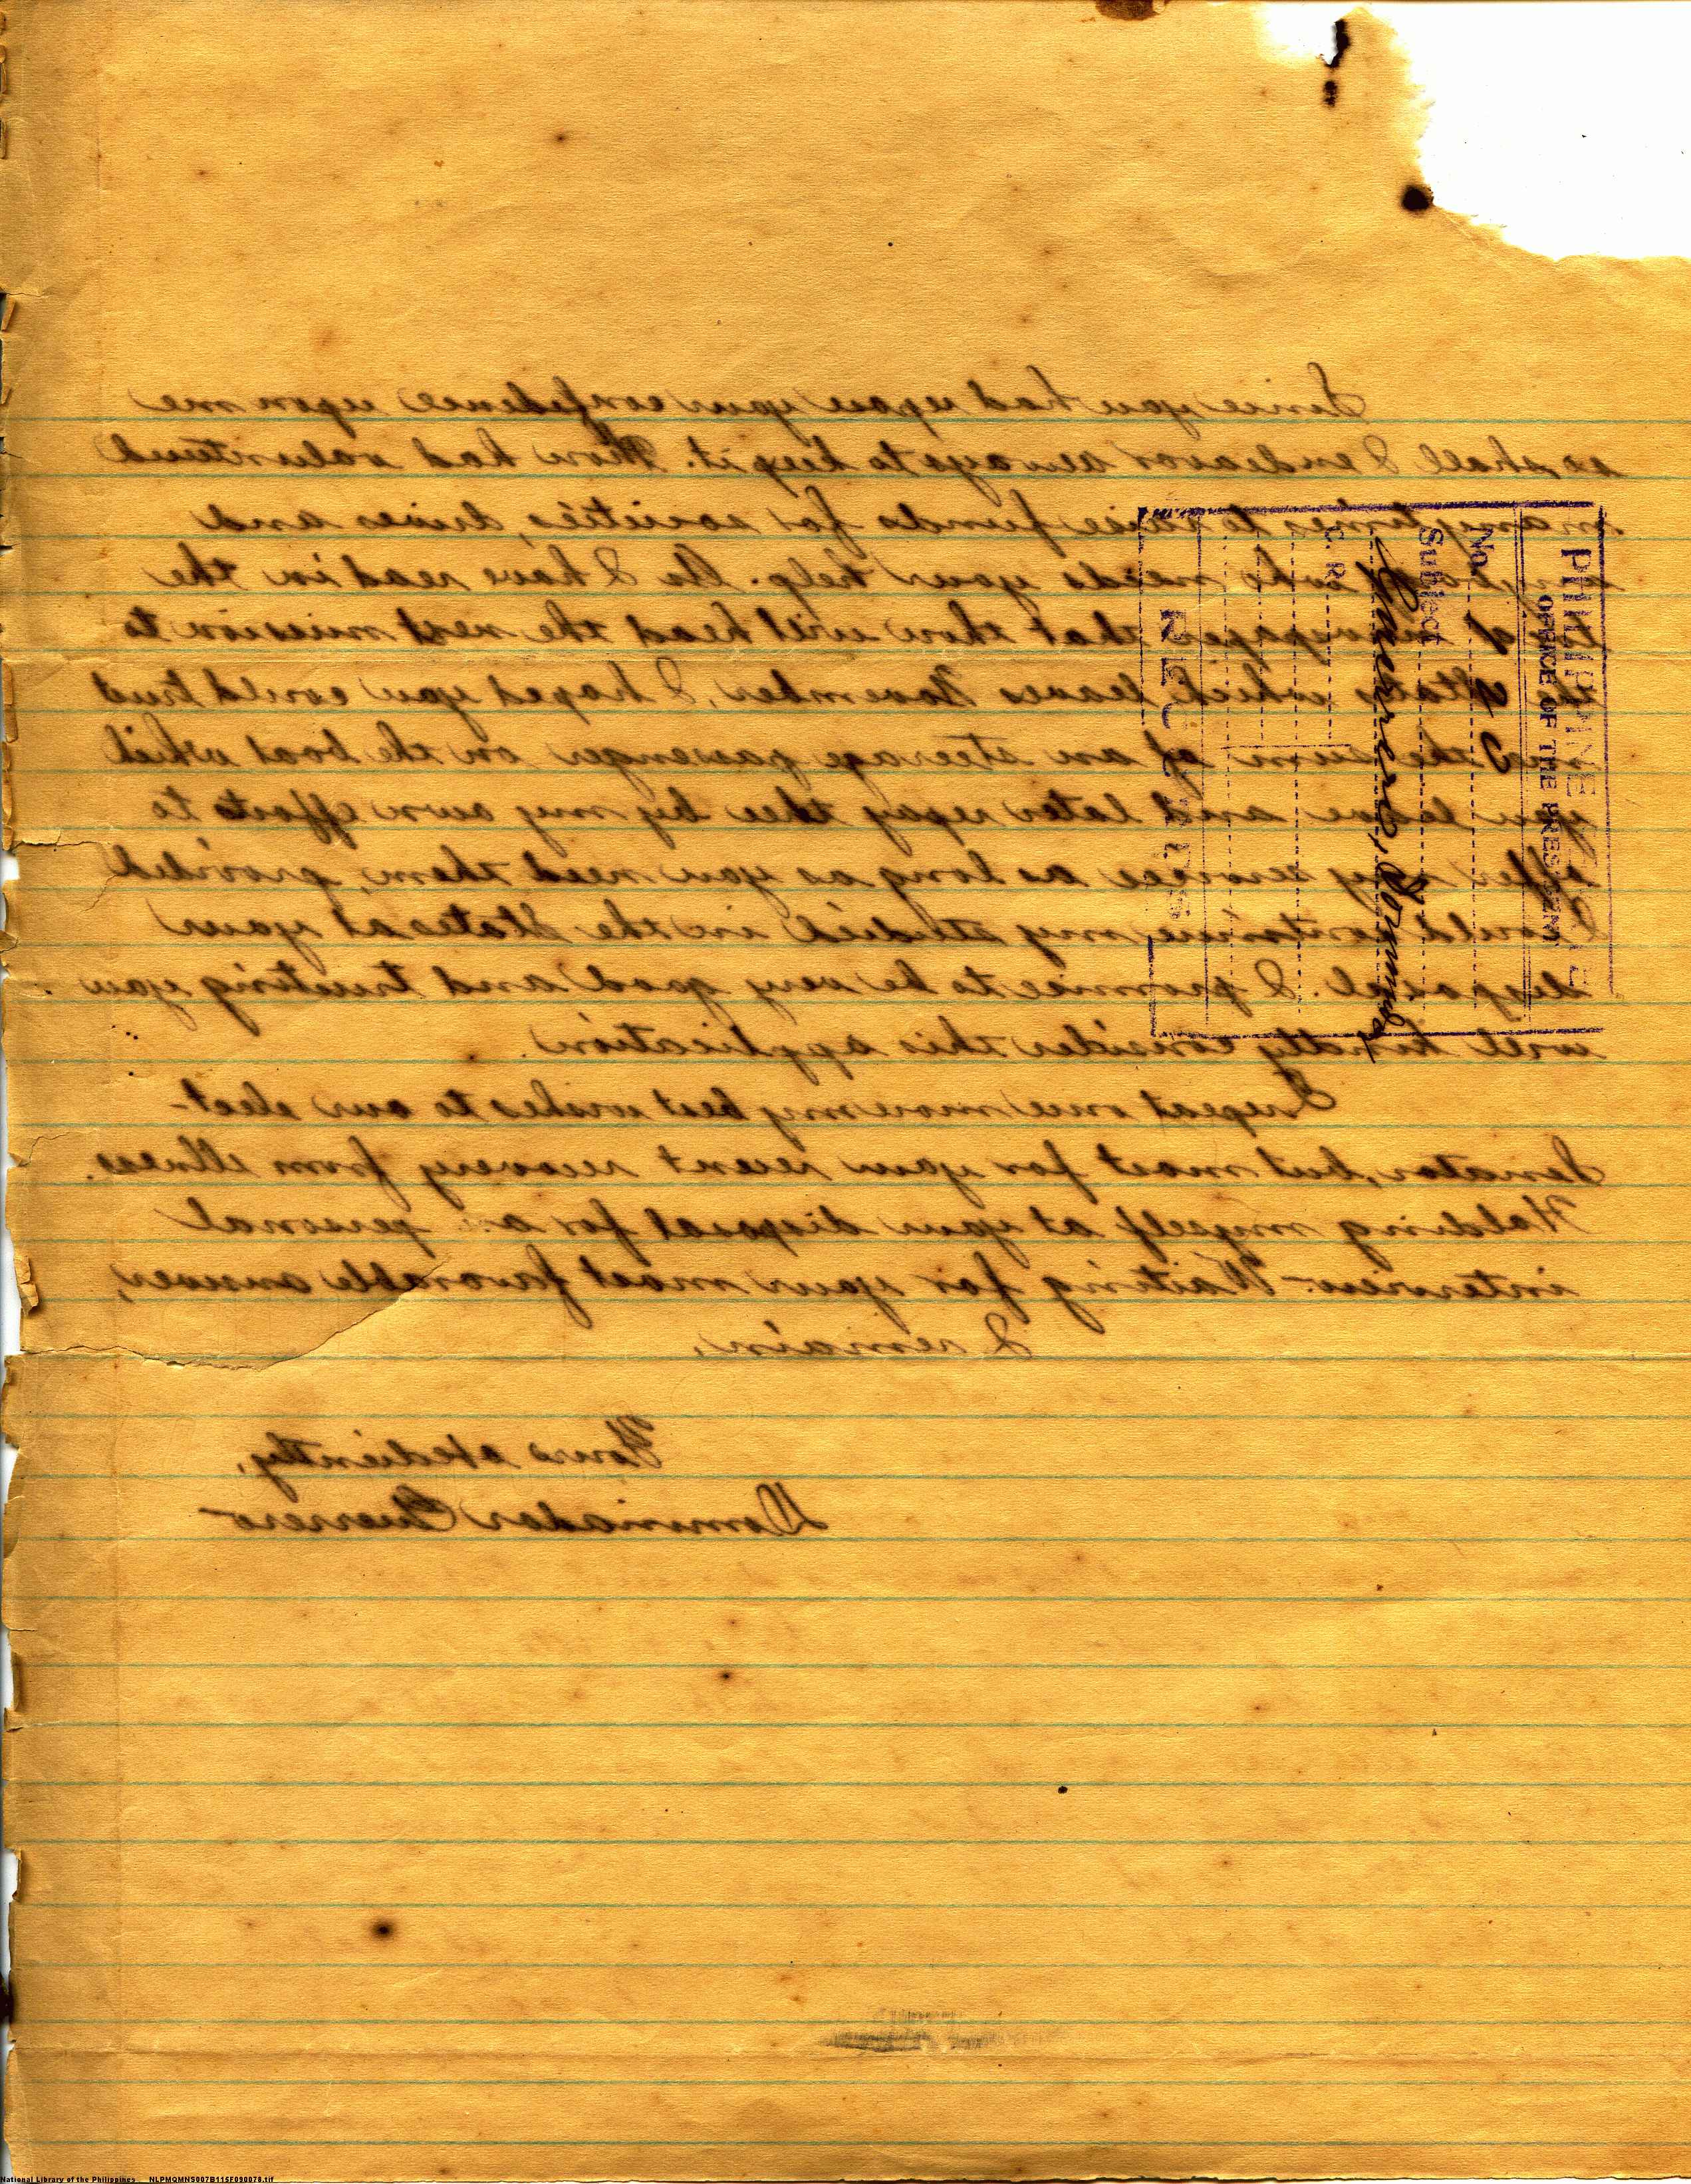 Since you had repose your confidence upon me
so shall I endeavor always to keep it. Thou had volunteered
many times to raise funds for societies, drives and
who needs your help. As I have read in the
newspaper that thou will head the next mission to
the States which leaves November, I hoped you could trust
me the sum of an steerage passenger on the boat which
you leave and later repay thee by my own efforts to
offer my services as long as you need them, provided
I could continue my studies in the States at your
disposal. I promise to be very good and trusting you
will kindly consider this application.
I repeat once more my best wishes to our elect-
Senator, but most for your recent recovery from illness.
Holding myself at your disposal for a personal
interview. Waiting for your most favorable answer,
I remain,
Yours obediently,
Dominador Guerrero
PHILIPPINE
OFFICE OF THE PRESIDENT
No.
Subject
Guerrero, Dominador
C. R.
RECORDS
National Library of the Philippines NLPMQMNS007B115F090078.tif